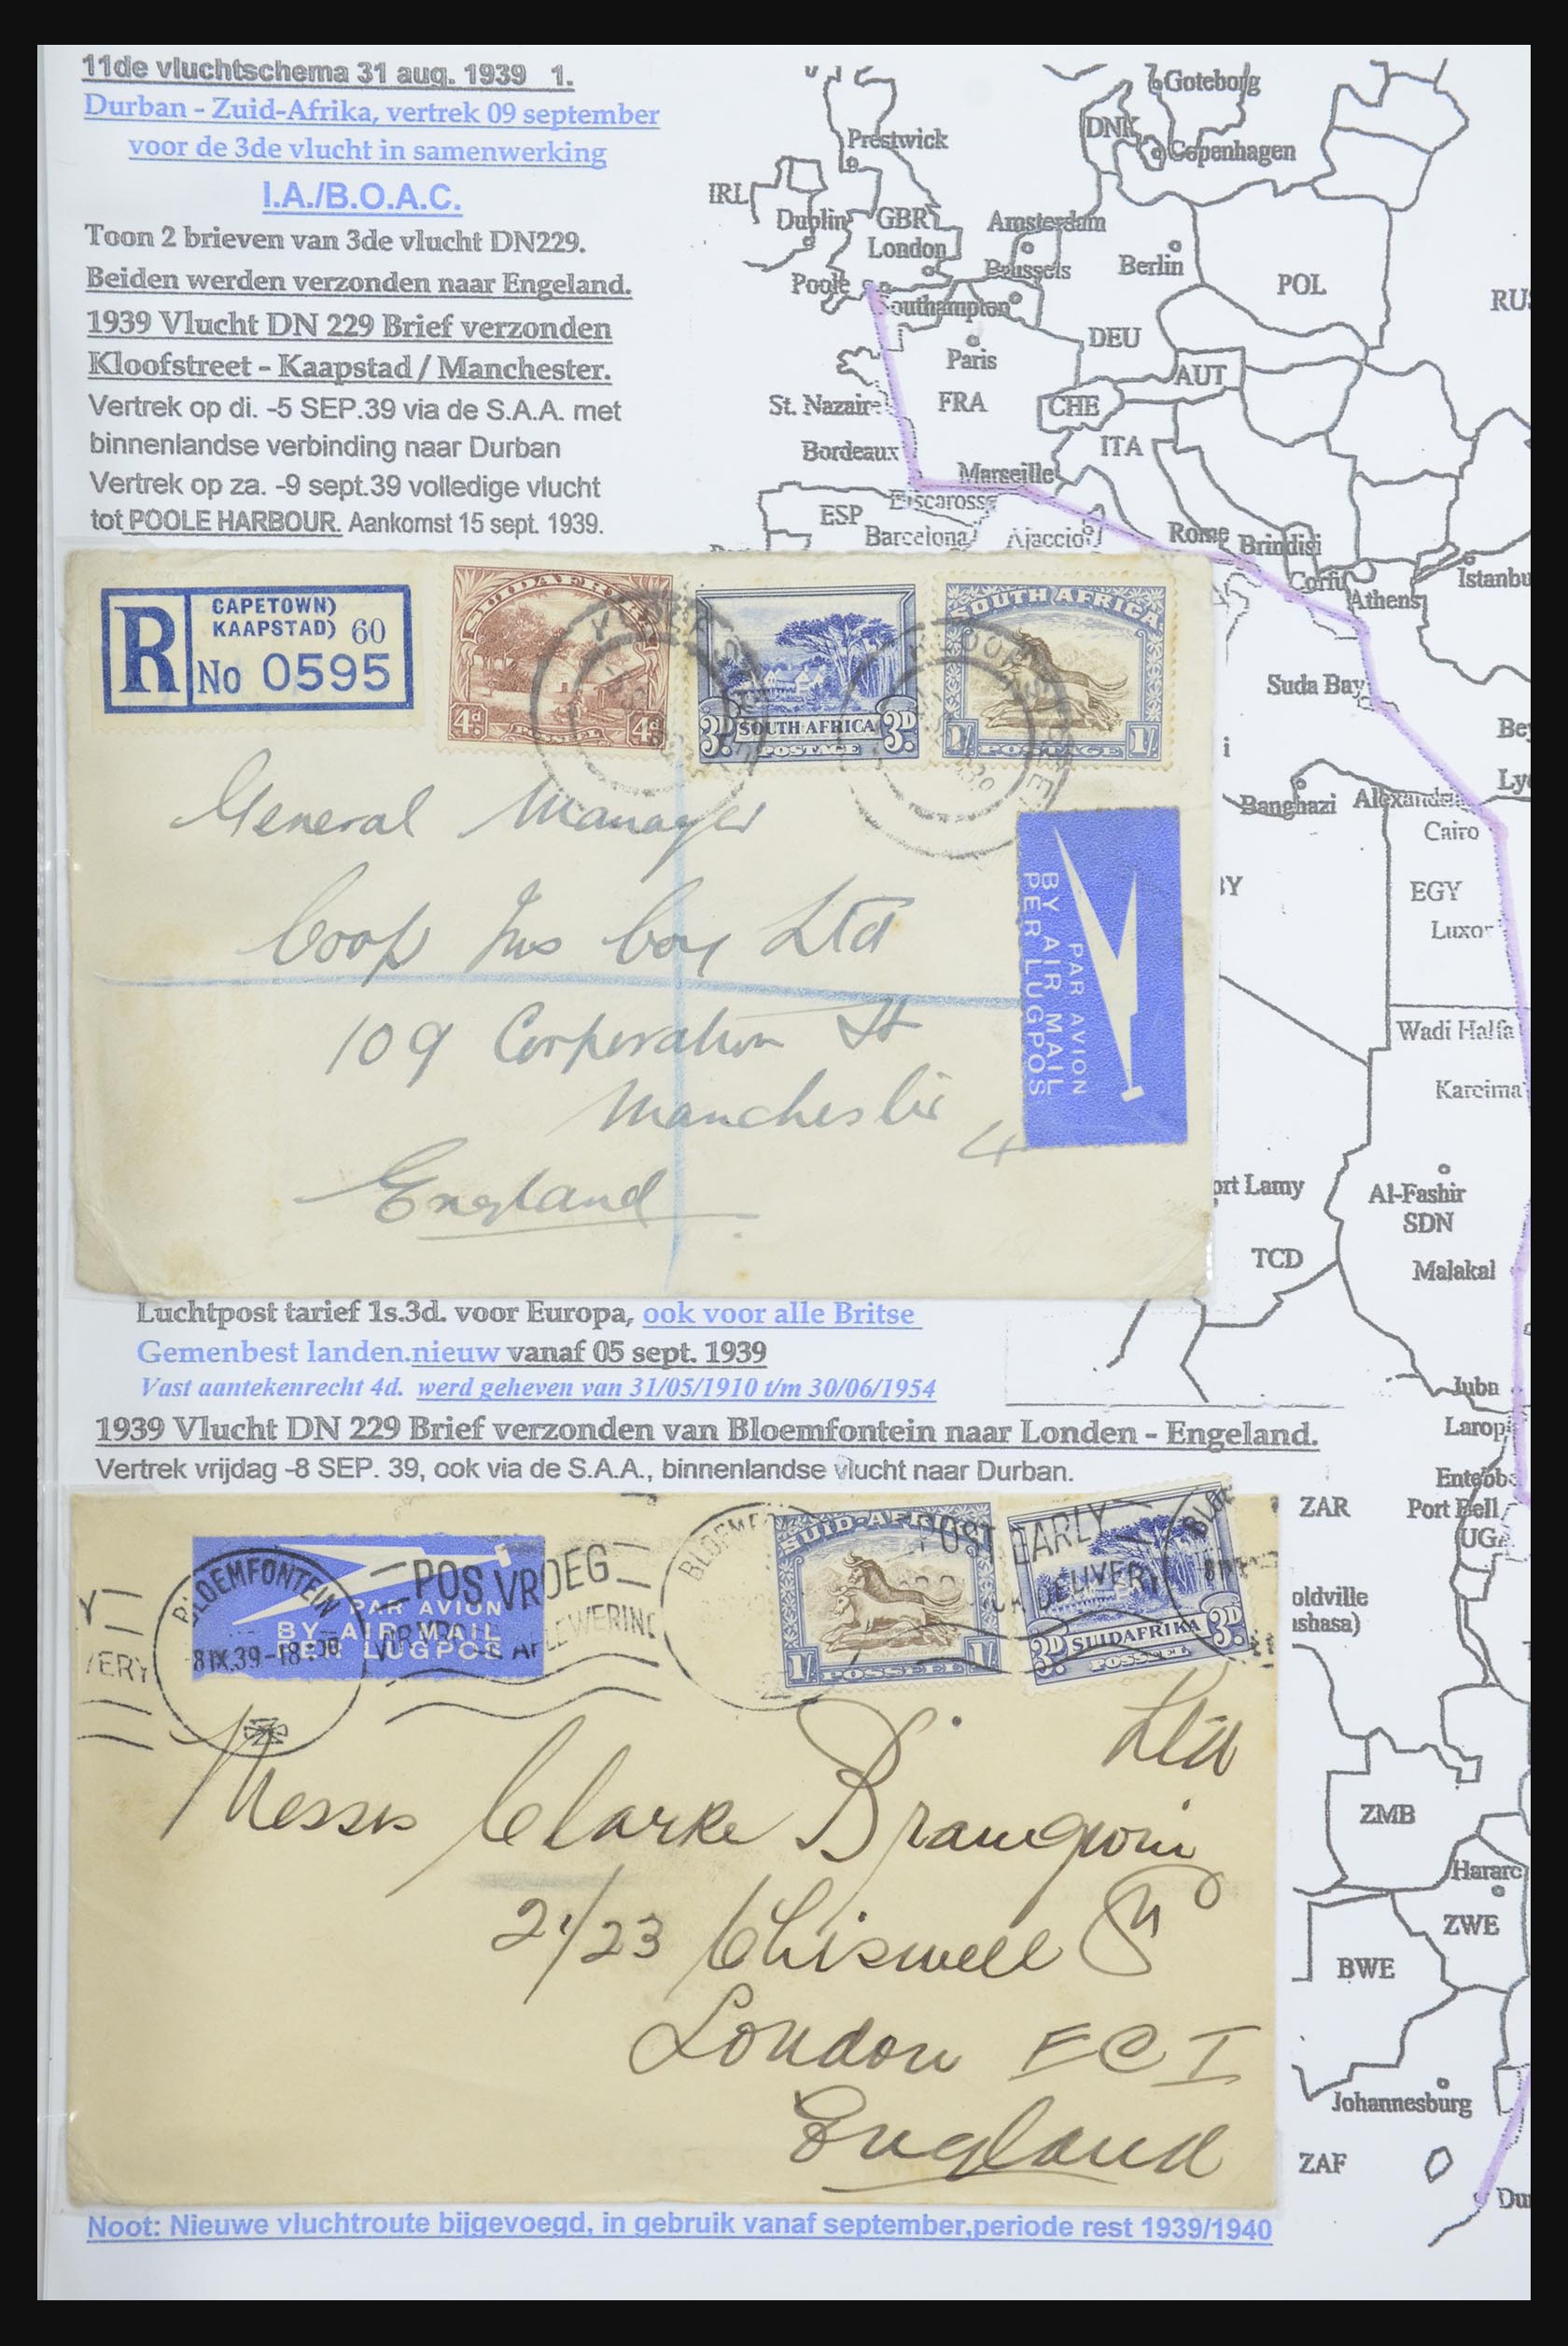 11de vluchtschema 31 aug. 1939 1.
Durban - Zuid-Afrika, vertrek 09 september
voor de 3de vlucht in samenwerking
I.A./B.O.A.C.
Toon 2 brieven van 3de vlucht DN229.
Beiden werden verzonden naar Engeland.
1939 Vlucht DN 229 Brief verzonden
Kloofstreet - Kaapstad / Manchester.
Vertrek op di. -5 SEP.39 via de S.A.A. met
binnenlandse verbinding naar Durban
Vertrek op za. -9 sept.39 volledige vlucht
tot POOLE HARBOUR. Aankomst 15 sept. 1939.
Goteborg
DNK
Prestwick
Copenhagen
IRL
Dublin
GBR
Amsterdam
London
Brussels
Berlin
Poole
POL
Southampton
DEU
Paris
AUT
St. Nazaire
FRA
CHE
Bordeaux
ITA
Marseille
Biscarosse
ESP
Barcelona
Ajaccio
Rome
Brindisi
Corfu
Athens
Suda Bay
Banghazi
Alexandria
Cairo
EGY
Luxor
Wadi Halfa
Kareima
Al-Fashir
SDN
TCD
Malakal
Juba
Port Bell
ZAR
ZMB
Harare
ZWE
BWE
Johannesburg
ZAF
R
CAPETOWN)
KAAPSTAD) 60
No 0595
SUIDAFRIKA
4d 4d
POSSEEL
3D SOUTH AFRICA 3D
POSTAGE
SOUTH AFRICA
1/- POSTAGE 1/-
General Manager
Coop Ins Coy Ltd
109 Corporation St
Manchester 4
England
PAR AVION
BY AIR MAIL
PER LUGPOS
Luchtpost tarief 1s.3d. voor Europa, ook voor alle Britse
Gemenbest landen.nieuw vanaf 05 sept. 1939
Vast aantekenrecht 4d. werd geheven van 31/05/1910 t/m 30/06/1954
1939 Vlucht DN 229 Brief verzonden van Bloemfontein naar Londen - Engeland.
Vertrek vrijdag -8 SEP. 39, ook via de S.A.A., binnenlandse vlucht naar Durban.
BLOEMFONTEIN
8 IX.39-18
POS VROEG
PAR AVION
BY AIR MAIL
PER LUGPOS
SUID-AFRIKA
1/- POSSEEL 1/-
POST EARLY
DELIVERY
3D SUIDAFRIKA 3D
POSSEEL
Ltd
Messrs Clarke
21/23 Chiswell St
London EC I
England
Noot: Nieuwe vluchtroute bijgevoegd, in gebruik vanaf september,periode rest 1939/1940